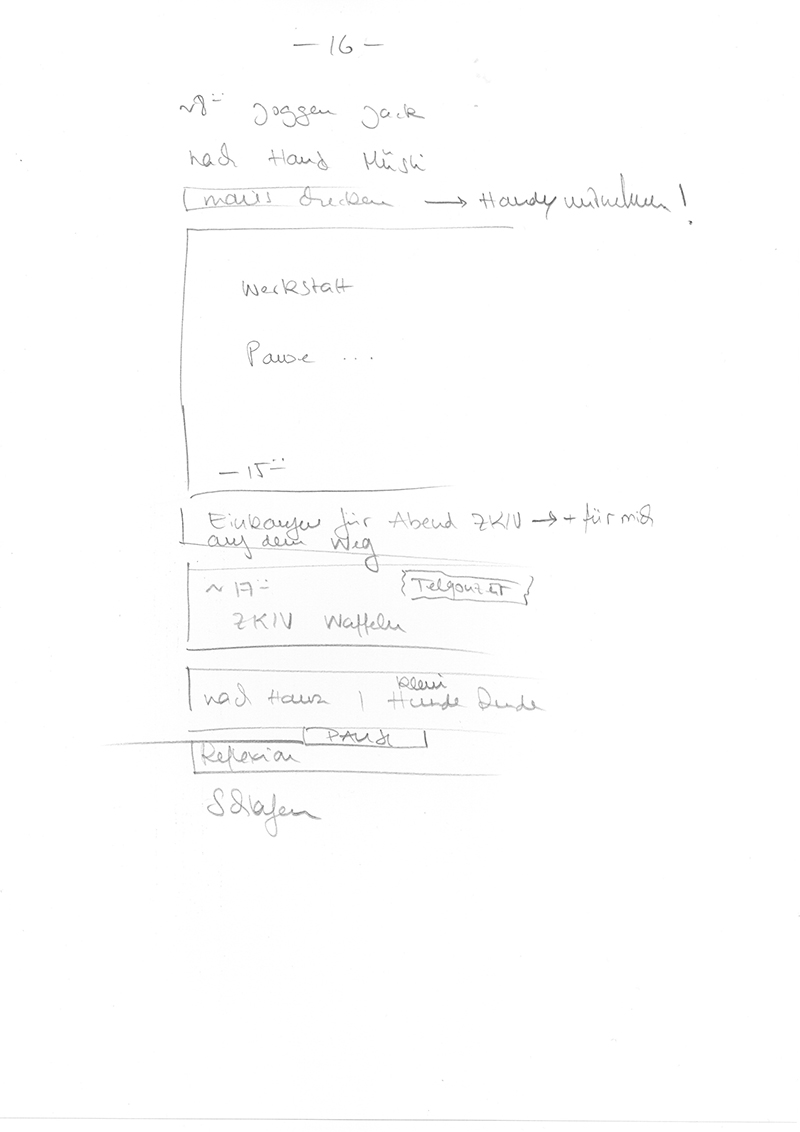 – 16 –
~8:00 Joggen Jack
nach Haus Müsli
mails checken → Handy mitnehmen!
Werkstatt
Pause ...
– 15:00
Einkaufen für Abend ZKIV → + für mich
auf dem Weg
~ 17:00
ZKIV Waffeln
nach Haus | kleine Hunde Runde
PAUSE
Reflexion
Schlafen